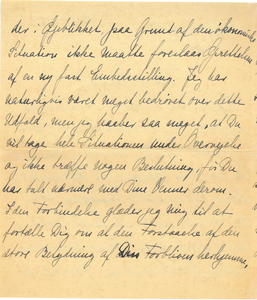 der i Øjeblikket paa Grund af den økonomiske
Situation ikke maatte foreslaas Oprettelsen
af en ny fast Embedsstilling. Jeg har
naturligvis været meget bedrøvet over dette
Udfald, men jeg haaber saa meget, at Du
vil tage hele Situationen under Overvejelse
og ikke træffe nogen Beslutning, før Du
har talt nærmere med Dine Venner derom.
I den Forbindelse glæder jeg mig til at
fortælle Dig om al den Forstaaelse af den
store Betydning af Din Forbliven herhjemme,